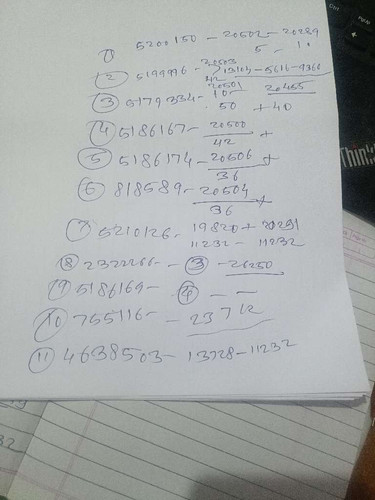 ① 5200150 - 20502 - 20289
5 - 10
② 5199996 - 20503 / 13104 - 5616 - 9360
42
③ 5179334 - 20501 20455
10
50 + 40
④ 5186167 - 20500 +
42
⑤ 5186174 - 20506 +
36
⑥ 818589 - 20504 +
36
⑦ 5210126 - 19820 + 20291
11232 - 11232
⑧ 2322266 - ③ - 26250
⑨ 5186169 - ④ - -
⑩ 755116 - 23712
⑪ 4638503 - 13728 - 11232
Think
Ctrl
PrtSc